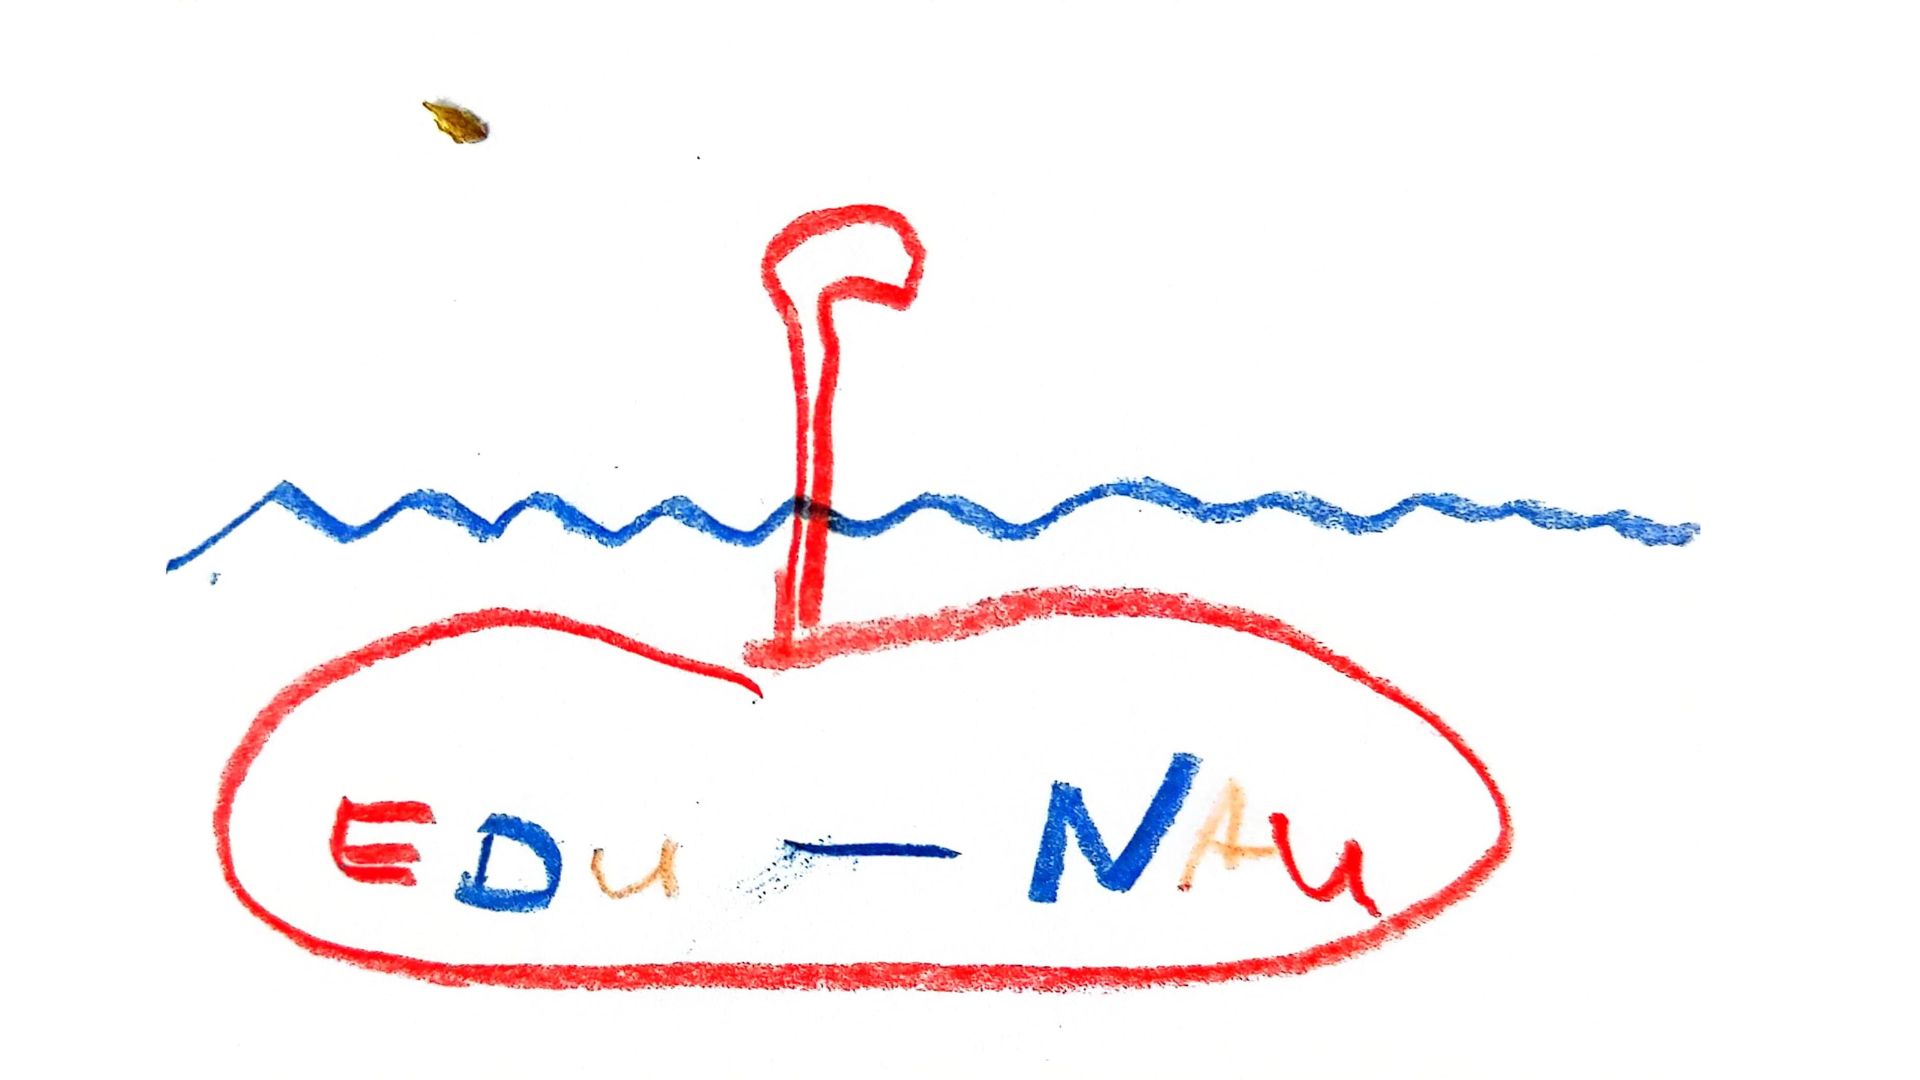 EDU - NAU